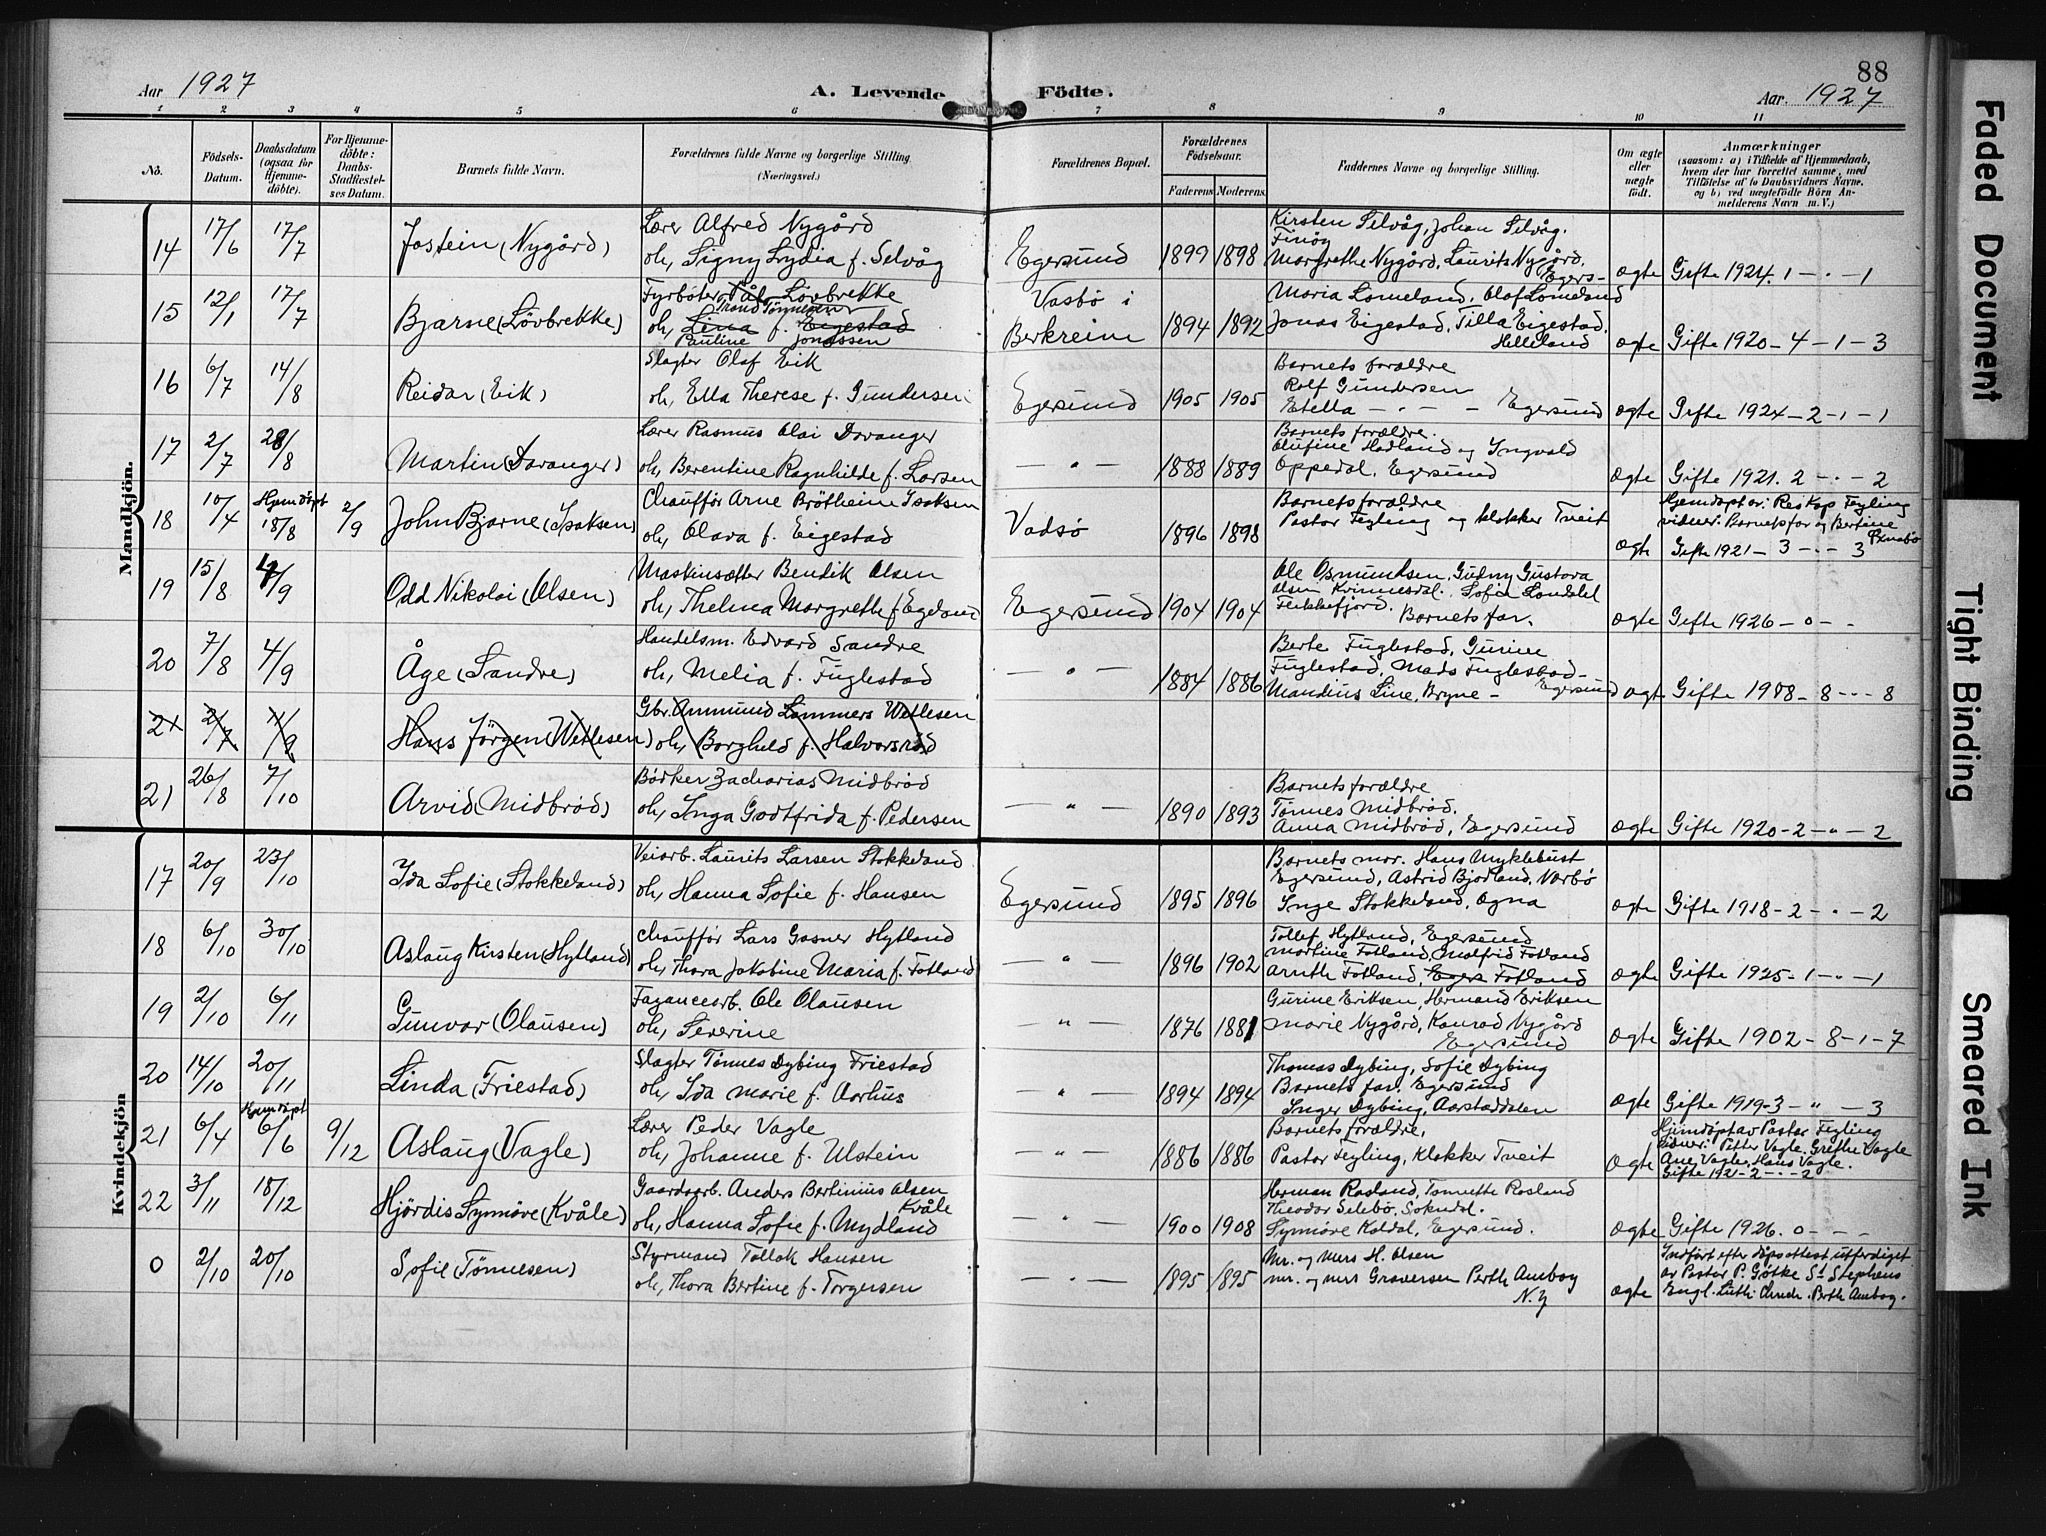 88
Aar 1927
A. Levende Födte.
Aar. 1927
1 2 3 4 5 6 7 8 9 10 11
No.
Födsels-Datum.
Daabsdatum (ogsaa for Hjemme-döbte).
For Hjemme-döbte: Daabs-Stadfæstel-ses Datum.
Barnets fulde Navn.
Forældrenes fulde Navne og borgerlige Stilling. (Næringsvei.)
Forældrenes Bopæl.
Forældrenes Födselsaar.
Faderens Moderens
Faddernes Navne og borgerlig Stilling.
Om ægte eller uægte födt.
Anmærkninger
(saasom: a) i Tilfælde af Hjemmedaab,
hvem der har forrettet samme, med
Tilföielse af to Daabsvidners Navne,
og b) ved uægtefödte Börn An-
melderens Navn m. V.)
Mandkjön.
14 17/6 17/7 Jostein (Nygård)
Lærer Alfred Nygård
oh, Signy Lydia f. Selvåg
Egersund 1899 1898
Kirsten Selvåg, Johan Selvåg.
Finöy
Margrethe Nygård, Laurits Nygård,
Egers-
ægte Gifte 1924. 1 - " - 1
15 12/1 17/7 Bjarne (Lövbrekke)
Fyrbøter Pål Lövbrekke
Trond Tønnesen
oh, Lina f. Eigestad
Pauline Jonassen
Vasbö i
Berkreim 1894 1892
Maria Lomeland, Olaf Lomeland
Jonas Eigestad, Tilla Eigestad,
Helleland
ægte Gifte 1920 - 4 - 1 - 3
16 6/7 14/8 Reidar (Eik)
Slagter Olaf Eik
oh, Ella Therese f. Gundersen
Egersund 1905 1905
Barnets forældre
Rolf Gundersen
Etella - " - - Egersund
ægte Gifte 1924 - 2 - 1 - 1
17 2/7 28/8 Martin (Davanger)
Lærer Rasmus Olai Davanger
oh, Berentine Ragnhilde f. Larsen
- " - 1888 1889
Barnets forældre.
Olufine Hadland og Yngvald
Oppedal, Egersund
ægte Gifte 1921. 2 - " - 2
18 10/4 Hjemdøpt 18/8 2/9 John Bjarne (Isaksen)
Chauffør Arne Brötheim Isaksen
oh, Olava f. Eigestad
Vadsø 1896 1898
Barnets forældre
Pastor Fegling og klokker Tveit
Hjemdøpt av: Res Kap Fegling
vidner: Barnets far og Bertine
ægte Gifte 1921 - 3 - " - 3
19 15/8 4/9 Odd Nikolai (Olsen)
Maskinsætter Bendik Olsen
oh, Thelma Margrethe f. Egeland
Egersund 1904 1904
Ole Osmundsen, Gudny Gustava
Olsen Kvinnesdal. Sofie Londalet
Fekkefjord. Barnets far.
ægte Gifte 1926 - 0 - "
20 7/8 4/9 Åge (Sandre)
Handelsm. Edvard Sandre
oh, Melia f. Fuglestad
- " - 1884 1886
Berte Fuglestad, Gurine
Fuglestad, Mads Fuglestad -
Mandius Line, Bryne - Egersund
ægte Gifte 1908 - 8 - " - 8
21 2/7 11/9 Hans Jörgen (Wetlesen)
Gbr. Ommund Lammers Wetlesen
oh, Borghild f. Halvorsrød
21 26/8 7/10 Arvid (Midbrød)
Bødker Zacharias Midbrød
oh, Inga Godtfrida f. Pedersen
- " - 1890 1893
Barnets forældre
Tønnes Midbrød.
Anna Midbrød, Egersund
ægte Gifte 1920 - 2 - " - 2
Kvindekjön
17 20/9 23/10 Ida Sofie (Stokkeland)
Veiarb. Laurits Larsen Stokkeland
oh, Hanna Sofie f. Hansen
Egersund 1895 1896
Barnets mor. Hans Myklebust
Egersund, Astrid Bjorland, Varbø
Inge Stokkeland, Ogna
ægte Gifte 1918 - 2 - " - 2
18 6/10 30/10 Aslaug Kirsten (Hytland)
Chauffør Lars Gasner Hytland
oh, Thora Jakobine Maria f. Fotland
- " - 1896 1902
Tollef Hytland, Egersund
Martine Fotland, Malfrid Fotland
Arnth Fotland, Egers Fotland
ægte Gifte 1925 - 1 - " - 1
19 2/10 6/11 Gunvor (Olausen)
Fayancearb. Ole Olausen
oh, Severine
- " - 1876 1881
Gurine Eriksen, Hermand Eriksen
Marie Nygård, Konrad Nygård
Egersund
ægte Gifte 1902 - 8 - 1 - 7
20 14/10 20/11 Linda (Friestad)
Slagter Tønnes Dybing Friestad
oh, Ida Marie f. Aarhus
- " - 1894 1894
Thomas Dybing, Sofie Dybing
Barnets far. Egersund
Inger Dybing, Aarstaddalen
ægte Gifte 1919 - 3 - " - 3
21 6/4 Hjemdøpt 6/6 9/12 Aslaug (Vagle)
Lærer Peder Vagle
oh, Johanne f. Ulstein
- " - 1886 1886
Barnets forældre,
Pastor Fegling, Klokker Tveit
ægte
Hjemdøpt av Pastor Fegling
vidner: Petter Vagle. Grethe Vagle
Ane Vagle, Hans Vagle.
Gifte 1921 - 2 - " - 2
22 3/11 18/12 Hjördis Synnöve (Kvåle)
Gaardsarb. Anders Bertinius Olsen
Kvåle
oh, Hanna Sofie f. Mydland
- " - 1900 1908
Herman Rosland, Tomette Rosland
Theodor Selebø, Sokndal.
Synnöve Koldal, Egersund.
ægte Gifte 1926. 0 - " -
0 2/10 20/10 Sofie (Tönnesen)
Styrmand Tollak Hansen
oh, Thora Bertine f. Torgersen
- " - 1895 1895
Mr. og Mrs H. Olsen
mr. og mrs Graversen Perth Amboy
N.Y
ægte
Indført efter døpsattest utferdiget
av Pastor P. Gøtke St Stephens
Engl. Luth. Church. Perth Amboy.
Faded Document
Tight Binding
Smeared Ink